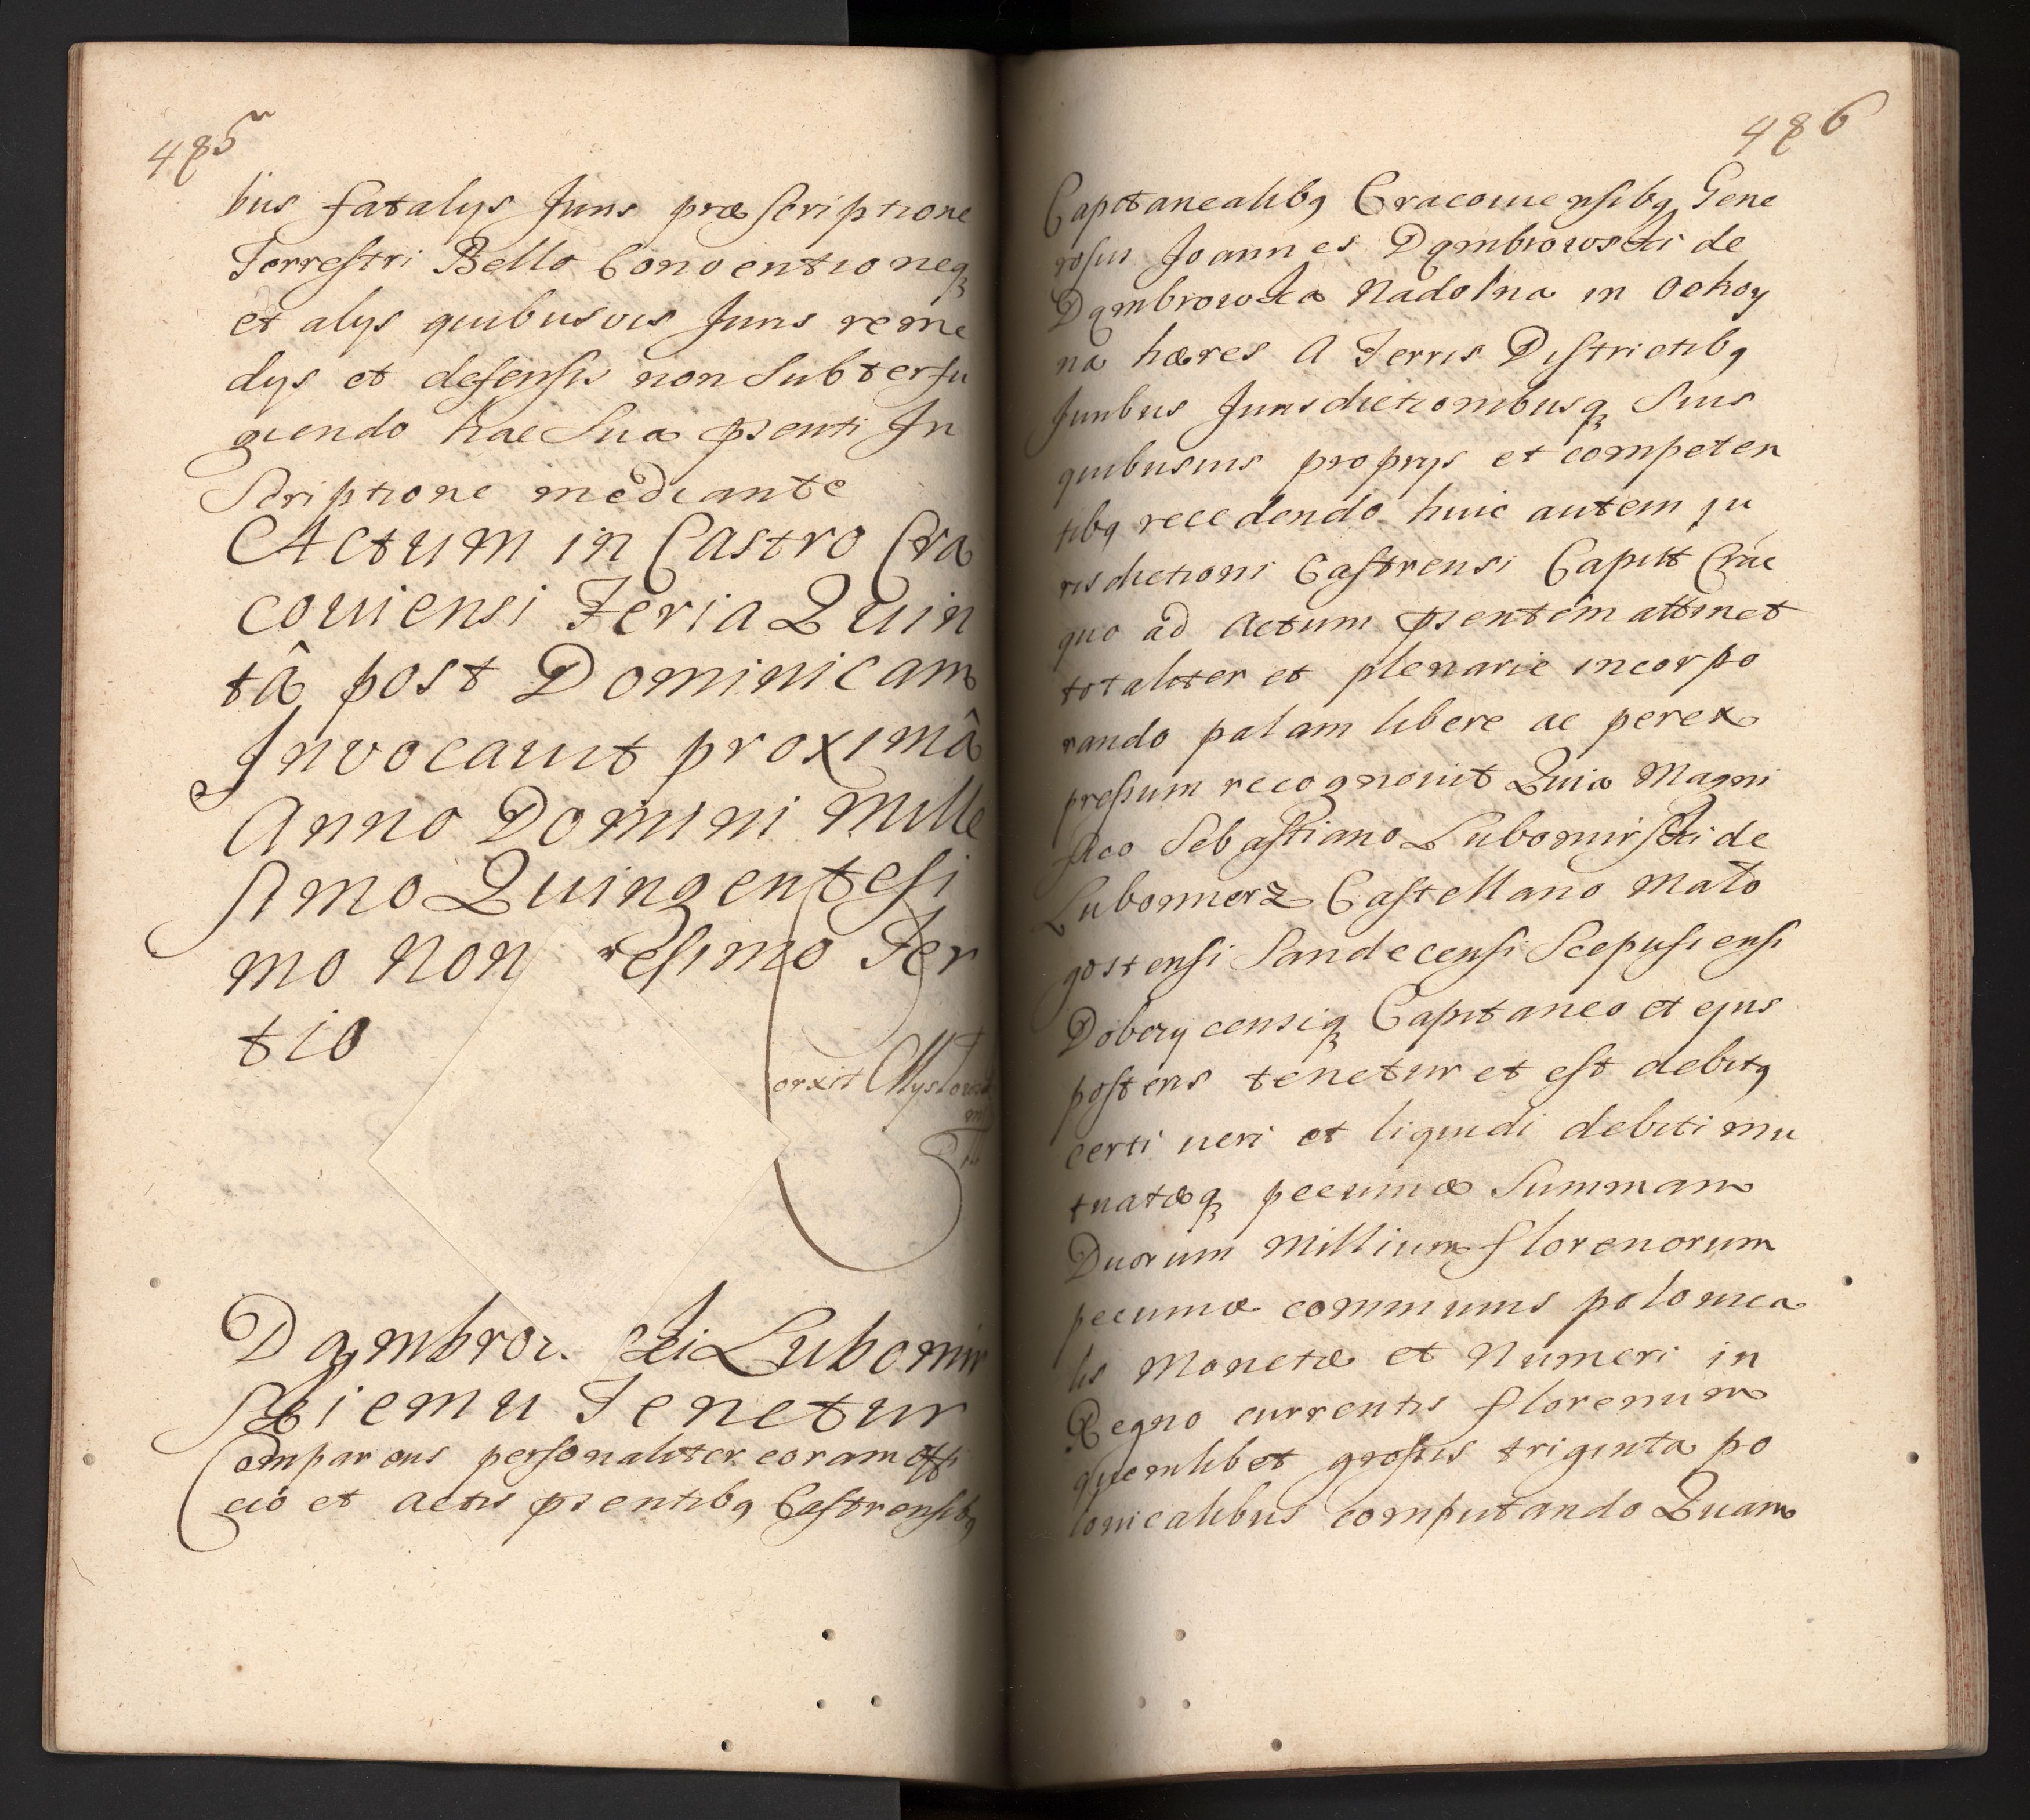 485
bus fatalys Juris præscriptione
Terrestri Bello Conventioneq
et alys quibusvis Juris reme
dys et defensis non Subterfu
giendo hac Sua psenti In
Scriptione mediante
Actum in Castro Cra
coviensi Feria Quin
tâ post Dominicam
Invocauit proximâ
Anno Domini Mille
simo Quingentesi
mo Non resimo Ter
tio
orxit
Dambro ki Lubomir
skiemu Tenetur
Comparens personaliter coram offi
cio et actis psentibq Castrensibq
486
Capitanealibq Cracouiensibq Gene
rosus Joannes Dąmbrowski de
Dąmbrowka Nadolna in Ochoy
na hæres A Terris Districtibq
Juribus Jurisdictionibusq Suis
quibusuis proprys et competen
tibq recedendo huic autem ju
risdictioni Castrensi Capitt Crac
quo ad Actum psentem attinet
totaliter et plenarie incorpo
rando palam libere ac perex
pressum recognouit Quia Magni
fico Sebastiano Lubomirski de
Lubomierz Castellano Mało
gostensi Sandecensi Scepusiensi
Dobczycensiq Capitaneo et ejus
posteris tenetur et est debitq
certi ueri et liquidi debiti mu
tuatæq pecuniæ Summam
Duorum Millium florenorum
pecuniæ communis polonica
lis Monetæ et Numeri in
Regno currentis florenum
quemlibet grossis triginta po
lonicalibus computando Quam